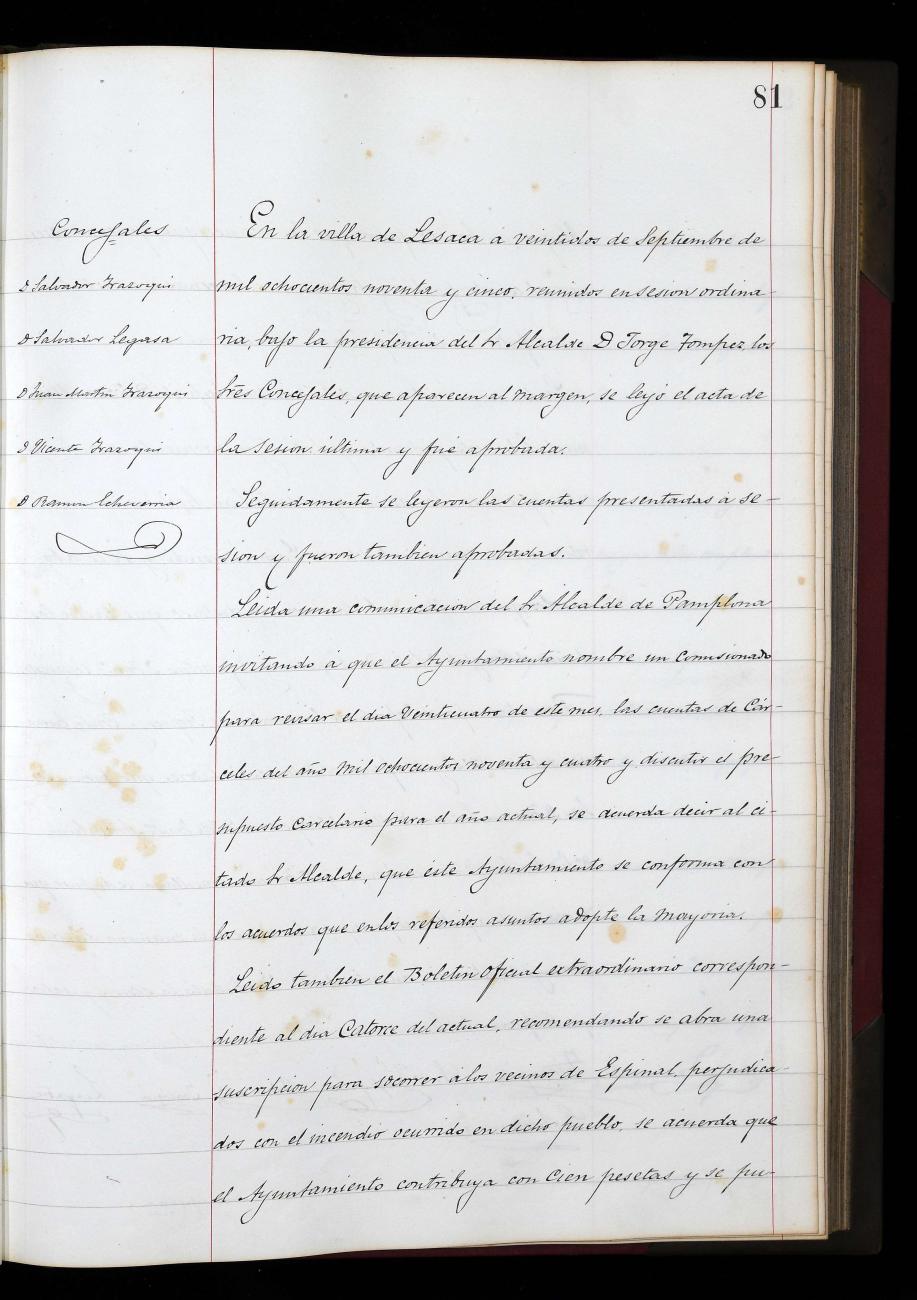 81
Concejales
D Salvador Irazoqui
D Salvador Legasa
D Juan Martin Irazoqui
D Vicente Irazoqui
D Ramon Echeverria
En la villa de Lesaca á veintidos de Septiembre de
mil ochocientos noventa y cinco, reunidos en sesion ordina-
ria, bajo la presidencia del Sr Alcalde D Jorge Tompez, los
Sres Concejales, que aparecen al margen, se leyó el acta de
la sesion última y fué aprobada.
Seguidamente se leyeron las cuentas presentadas á se-
sion y fueron tambien aprobadas.
Leida una comunicacion del Sr Alcalde de Pamplona
invitando á que el Ayuntamiento nombre un Comisionado
para revisar el dia Veinticuatro de este mes, las cuentas de Cár-
celes del año mil ochocientos noventa y cuatro y discutir el pre-
supuesto Carcelario para el año actual, se acuerda decir al ci-
tado Sr Alcalde, que éste Ayuntamiento se conforma con
los acuerdos que en los referidos asuntos adopte la mayoria.
Leido tambien el Boletin Oficial extraordinario correspon-
diente al dia Catorce del actual, recomendando se abra una
suscripcion para socorrer á los vecinos de Espinal, perjudica-
dos con el incendio ocurrido en dicho pueblo, se acuerda que
el Ayuntamiento contribuya con Cien pesetas y se pu-